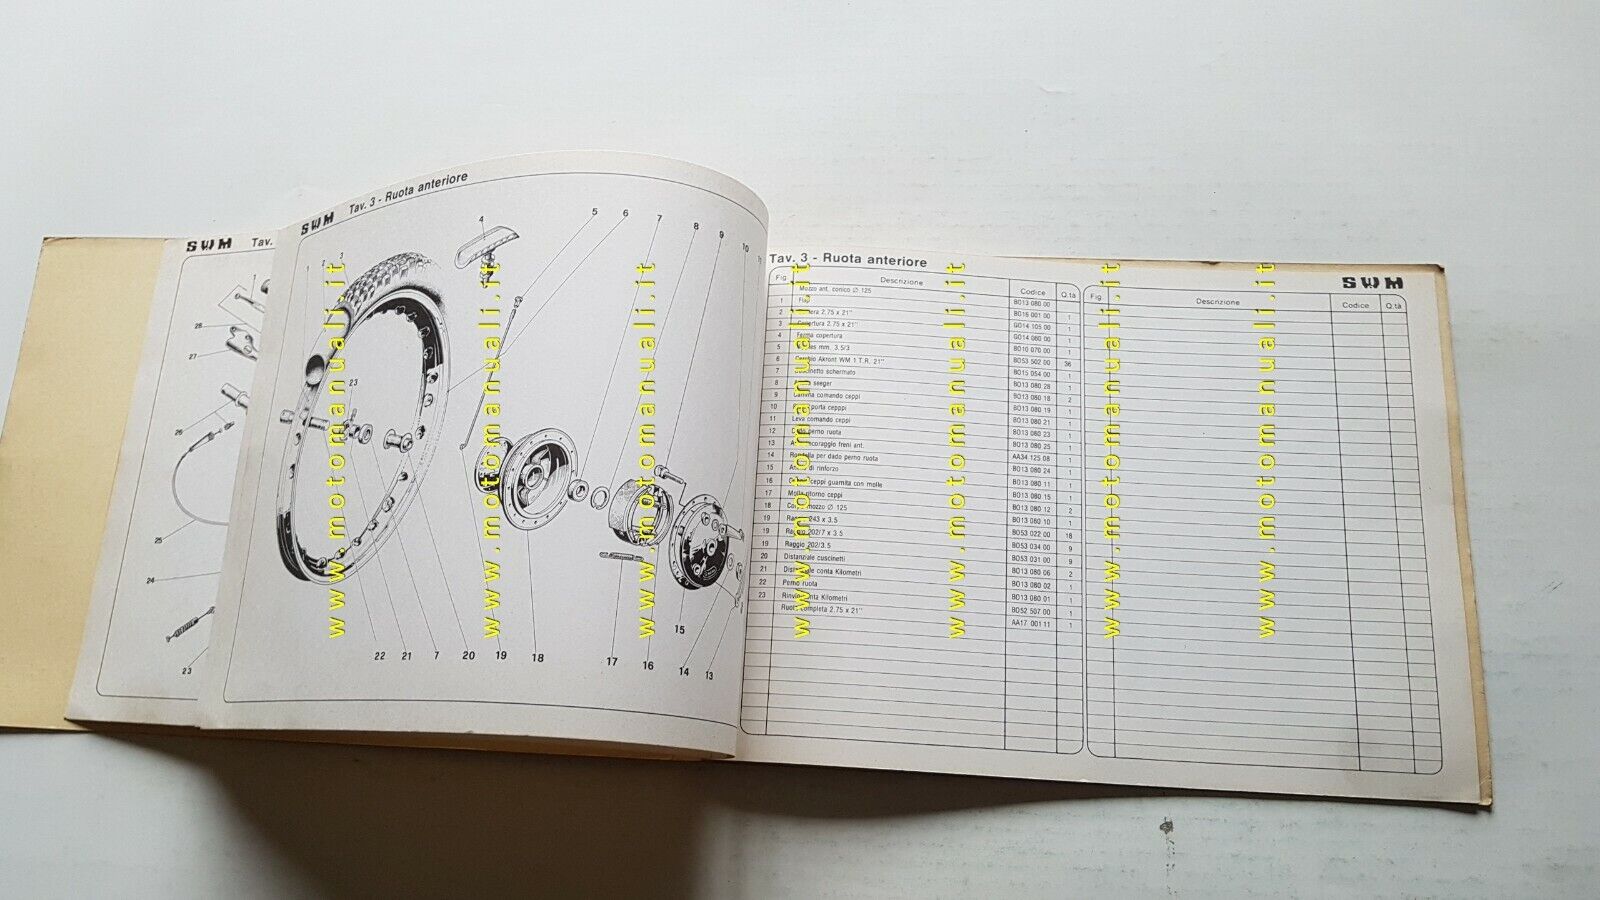 SWM Tav.
28
27
26
25
24
23
SWM Tav. 3 - Ruota anteriore
1 2 3 4 5 6 7 8 9 10
23
22 21 7 20 19 18 17 16 15 14 13
Tav. 3 - Ruota anteriore SWM
Fig. Descrizione Codice Q.tà Fig. Descrizione Codice Q.tà
Mozzo ant. conico ∅ 125 B013 080 00
1 Flap B016 001 00 1
2 2.75 x 21" G014 105 00 1
3 2.75 x 21" G014 060 00 1
4 Ferma copertura B010 070 00 1
5 mm. 3.5/3 B053 502 00 36
6 Cerchio Akront WM 1 T.R. 21" B015 054 00 1
7 Cuscinetto schermato B013 080 28 1
8 seeger B013 080 18 2
9 Camma comando ceppi B013 080 19 1
10 porta cepppi B013 080 21 1
11 Leva comando ceppi B013 080 23 1
12 Dado perno ruota B013 080 25 1
13 freni ant. AA34 125 08 1
14 Rondella per dado perno ruota B013 080 24 1
15 di rinforzo B013 080 11 1
16 ceppi guarnita con molle B013 080 15 1
17 Molla ritorno ceppi B013 080 12 2
18 mozzo ∅ 125 B013 080 10 1
19 Raggio 243 x 3.5 B053 022 00 18
19 Raggio 202/7 x 3.5 B053 034 00 9
19 Raggio 202/3.5 B053 031 00 9
20 Distanziale cuscinetti B013 080 06 2
21 Distanziale conta Kilometri B013 080 02 1
22 Perno ruota B013 080 01 1
23 Rinvio conta Kilometri B052 507 00 1
Ruota completa 2.75 x 21" AA17 001 11 1
www.motomanuali.it
www.motomanuali.it
www.motomanuali.it
www.motomanuali.it
www.motomanuali.it
www.motomanuali.it
www.motomanuali.it